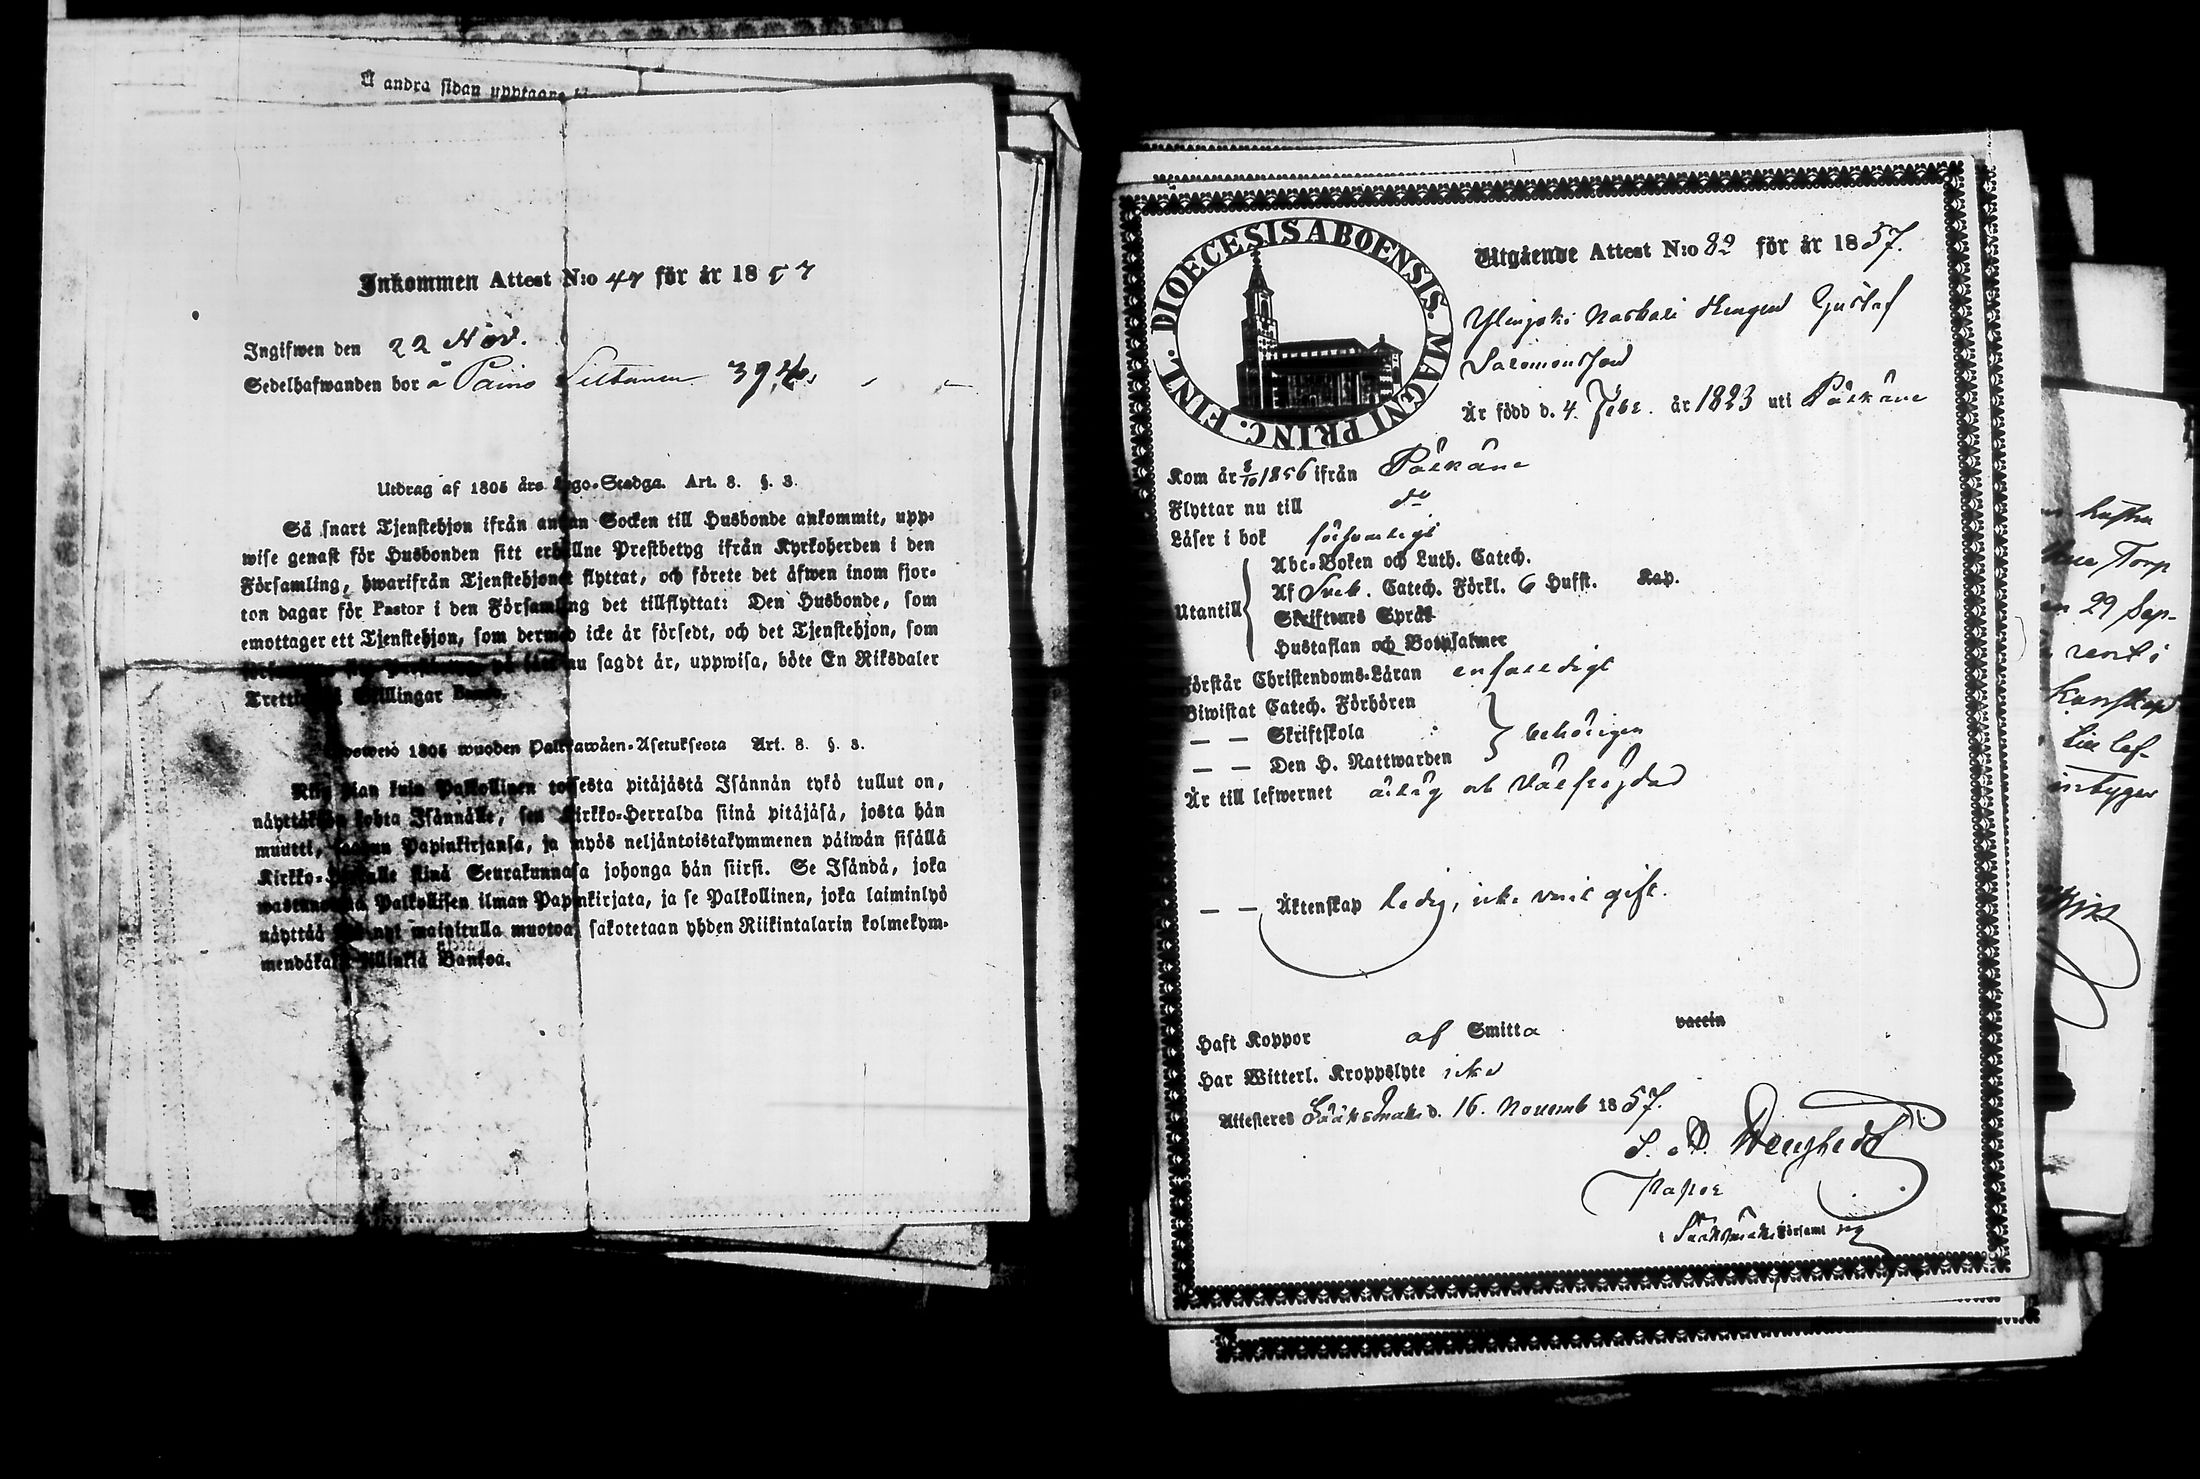 Å andra sidan upptagne
Inkommen Attest N:o 47 för år 1857
Ingifwen den 22 Nov.
Sedelhafwanden bor å Paino Siltanen 394
Utdrag af 1805 års Lego-Stadga. Art. 8. §. 3.
Så snart Tjenstehjon ifrån annan Socken till Husbonde ankommit, upp-
wise genast för Husbonden sitt erhållne Prestbetyg ifrån Kyrkoherden i den
Församling, hwarifrån Tjenstehjonet flyttat, och förete det äfwen inom fjor-
ton dagar för Pastor i den Församling det tillflyttat: Den Husbonde, som
emottager ett Tjenstehjon, som dermed icke är försedt, och det Tjenstehjon, som
på sätt nu sagdt är, uppwisa, böte En Riksdaler
Skillingar Banco.
1805 wuoden Palkkawäen-Asetuksesta Art. 8. §. 3.
Niin pian kuin Palkollinen toisesta pitäjästä Isännän tykö tullut on,
näyttäköön kohta Isännälle, sen Kirkko-Herralda siinä pitäjäsä, josta hän
muutti, saadun Papinkirjansa, ja myös neljäntoistakymmenen päiwän sisällä
Kirkko-Herralle siinä Seurakunnasa johonga hän siirsi. Se Isändä, joka
Palkollisen ilman Papinkirjata, ja se Palkollinen, joka laiminlyö
näyttää nyt mainitulla muotoa, sakotetaan yhden Riikintalarin kolmekym-
mendäkaksi killinkiä Bankoa.
DIOECESIS ABOENSIS. MAGNI PRINC. FINL.
Utgående Attest N:o 82 för år 1857.
Gustaf
Salomonsson
Är född d. 4. Febr. år 1823 uti Pälkäne
Kom år 8/10 1856 ifrån Pälkäne
Flyttar nu till do
Läser i bok försvarligt
Utantill
Abc-Boken och Luth. Catech.
Af Sveb. Catech. Förkl. 6 Hufst. Kap.
Skriftenes Språk
Hustaflan och Botpsalmer
Förstår Christendoms-Läran enfaldigt
Biwistat Catech. Förhören
— — Skriftskola behörigen
— — Den H. Nattwarden
Är till lefwernet ärlig och välfrejdad
— — Äktenskap ledig, icke varit gift.
Haft Koppor af Smitta vaccin
Har Witterl. Kroppslyte icke
Attesteres Sääksmäki d. 16. Novemb 1857.
Pastor
i Sääksmäki Församling
hustru
Torp
29 Sep-
Kunskap
till lef-
intygar